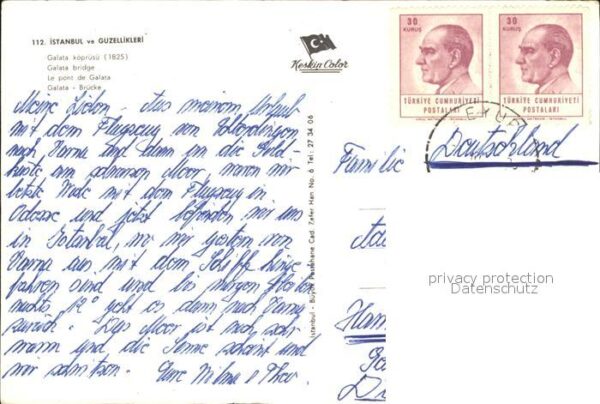 112. İSTANBUL ve GÜZELLİKLERİ
Galata köprüsü (1825)
Galata bridge
Le pont de Galata
Galata - Brücke
Keskin Color
30
KURUŞ
TÜRKİYE CUMHURİYETİ
POSTALARI
30
KURUŞ
TÜRKİYE CUMHURİYETİ
POSTALARI
Meine Lieben - Aus meinem Urlaub
mit dem Flugzeug von
nach Varna und dann an die Gold-
küste am schwarzen Meer, waren wir
letzte Woche mit dem Flugzeug in
Odessa und jetzt befinden wir uns
in Istanbul, wo wir gestern von
Varna aus mit dem Schiff hinge
fahren sind und bis morgen
nachts 12° geht es dann nach Varna
zurück. Das Meer ist noch sehr
warm und die Sonne scheint und
wir schwitzen. Eure Wilma & Theo.
İstanbul - Büyük Postahane Cad. Zafer Han No. 6 Tel: 27 34 06
EYÜP
Deutschland
Familie
Ham
privacy protection
Datenschutz